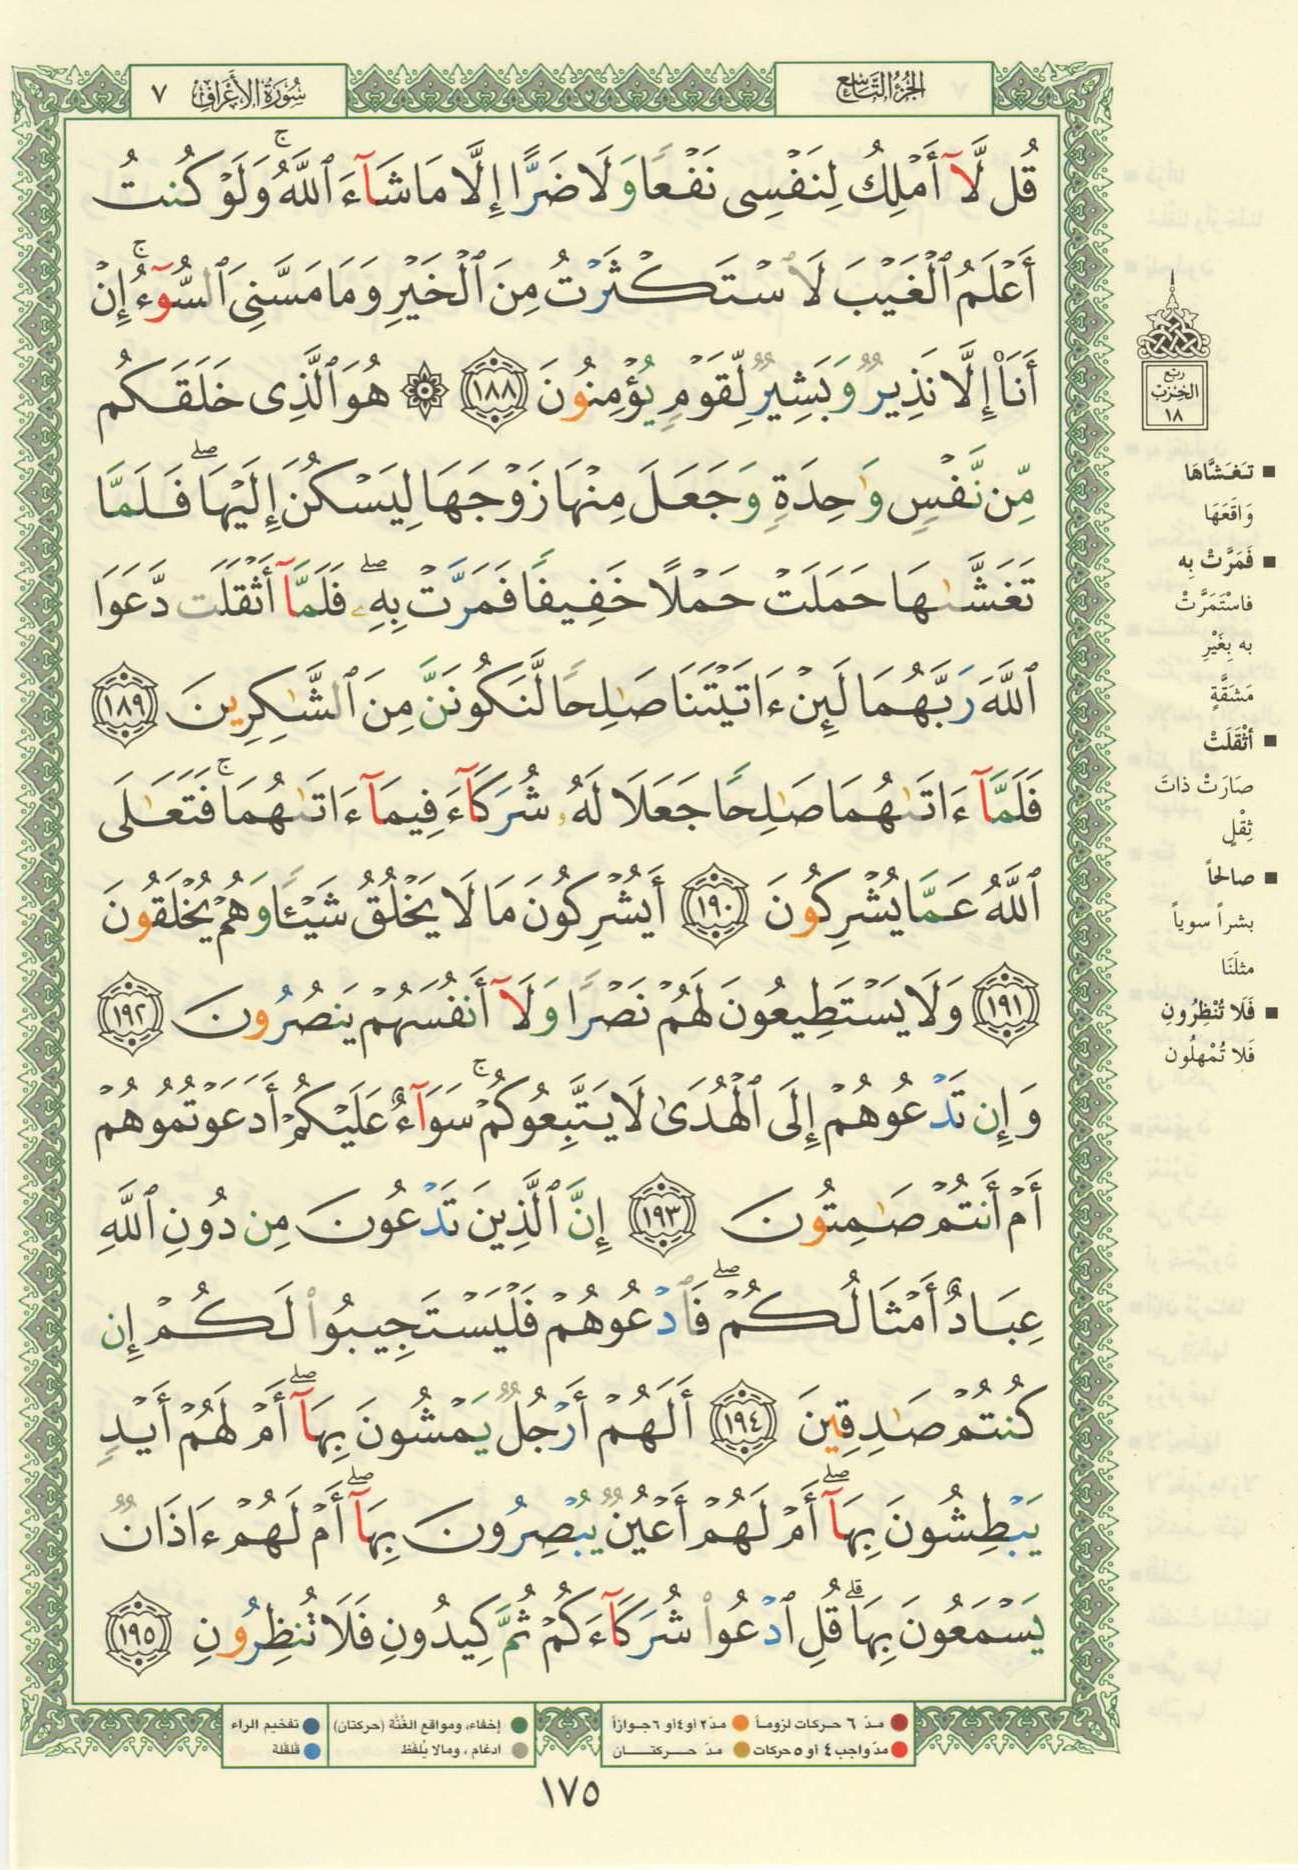 سُورَةُ الأَعْرَافِ ٧
الجُزْءُ التَّاسِعُ
قُل لَّآ أَمْلِكُ لِنَفْسِى نَفْعًا وَلَا ضَرًّا إِلَّا مَا شَآءَ ٱللَّهُ ۚ وَلَوْ كُنتُ
أَعْلَمُ ٱلْغَيْبَ لَٱسْتَكْثَرْتُ مِنَ ٱلْخَيْرِ وَمَا مَسَّنِىَ ٱلسُّوٓءُ ۚ إِنْ
أَنَا۠ إِلَّا نَذِيرٌ وَبَشِيرٌ لِّقَوْمٍ يُؤْمِنُونَ ١٨٨ ۞ هُوَ ٱلَّذِى خَلَقَكُم
مِّن نَّفْسٍ وَٰحِدَةٍ وَجَعَلَ مِنْهَا زَوْجَهَا لِيَسْكُنَ إِلَيْهَا ۖ فَلَمَّا
تَغَشَّىٰهَا حَمَلَتْ حَمْلًا خَفِيفًا فَمَرَّتْ بِهِۦ ۖ فَلَمَّآ أَثْقَلَت دَّعَوَا
ٱللَّهَ رَبَّهُمَا لَئِنْ ءَاتَيْتَنَا صَٰلِحًا لَّنَكُونَنَّ مِنَ ٱلشَّٰكِرِينَ ١٨٩
فَلَمَّآ ءَاتَىٰهُمَا صَٰلِحًا جَعَلَا لَهُۥ شُرَكَآءَ فِيمَآ ءَاتَىٰهُمَا ۚ فَتَعَٰلَى
ٱللَّهُ عَمَّا يُشْرِكُونَ ١٩٠ أَيُشْرِكُونَ مَا لَا يَخْلُقُ شَيْـًٔا وَهُمْ يُخْلَقُونَ
١٩١ وَلَا يَسْتَطِيعُونَ لَهُمْ نَصْرًا وَلَآ أَنفُسَهُمْ يَنصُرُونَ ١٩٢
وَإِن تَدْعُوهُمْ إِلَى ٱلْهُدَىٰ لَا يَتَّبِعُوكُمْ ۚ سَوَآءٌ عَلَيْكُمْ أَدَعَوْتُمُوهُمْ
أَمْ أَنتُمْ صَٰمِتُونَ ١٩٣ إِنَّ ٱلَّذِينَ تَدْعُونَ مِن دُونِ ٱللَّهِ
عِبَادٌ أَمْثَالُكُمْ ۖ فَٱدْعُوهُمْ فَلْيَسْتَجِيبُوا۟ لَكُمْ إِن
كُنتُمْ صَٰدِقِينَ ١٩٤ أَلَهُمْ أَرْجُلٌ يَمْشُونَ بِهَآ ۖ أَمْ لَهُمْ أَيْدٍ
يَبْطِشُونَ بِهَآ ۖ أَمْ لَهُمْ أَعْيُنٌ يُبْصِرُونَ بِهَآ ۖ أَمْ لَهُمْ ءَاذَانٌ
يَسْمَعُونَ بِهَا ۗ قُلِ ٱدْعُوا۟ شُرَكَآءَكُمْ ثُمَّ كِيدُونِ فَلَا تُنظِرُونِ ١٩٥
ربع
الحزب
١٨
■ تَغَشَّاهَا
وَاقَعَهَا
■ فَمَرَّتْ بِه
فاسْتَمَرَّتْ
به بِغَيْرِ
مَشَقَّةٍ
■ أثْقَلَتْ
صَارَتْ ذاتَ
ثِقْلٍ
■ صالحًا
بشراً سوياً
مثلَنَا
■ فَلَا تُنْظِرُونِ
فَلا تُمْهِلُون
مدّ ٦ حركات لزوماً ● مدّ ٢ أو ٤ أو ٦ جوازاً
مدّ واجب ٤ أو ٥ حركات ● مدّ حركتان
إخفاء، ومواقع الغُنَّة (حركتان) ● تفخيم الراء
ادغام ، ومالا يُلفَظ ● قلقلة
١٧٥